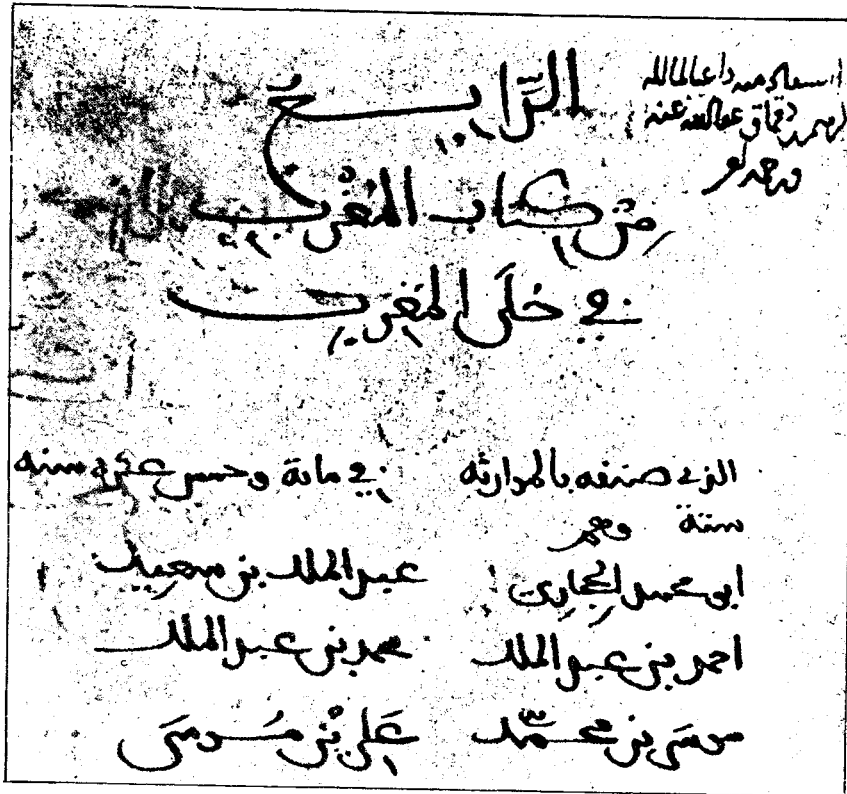 استفاد منه داعيا لمالكه
دقماق عفا الله عنه
الرَّابعُ
من كتاب المُغْرب
في حُلَى المَغرب
الذي صنفه بالموارثه في مائة وخمس عشرة سنه
ستة وهم
ابو محمد الحجاري عبد الملك بن سعيد
احمد بن عبد الملك محمد بن عبد الملك
موسى بن محمّد عَلي بْن مُوسَى